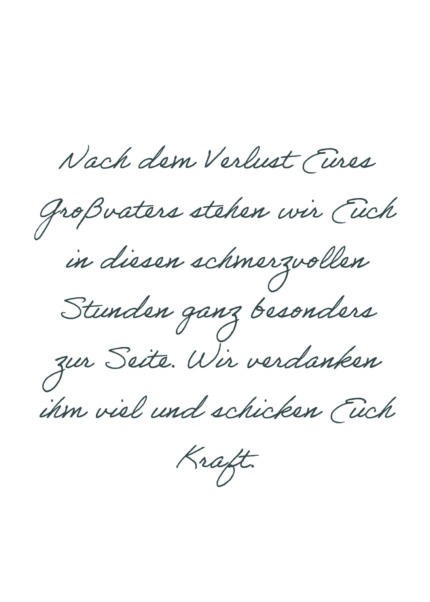 Nach dem Verlust Eures
Großvaters stehen wir Euch
in diesen schmerzvollen
Stunden ganz besonders
zur Seite. Wir verdanken
ihm viel und schicken Euch
Kraft.